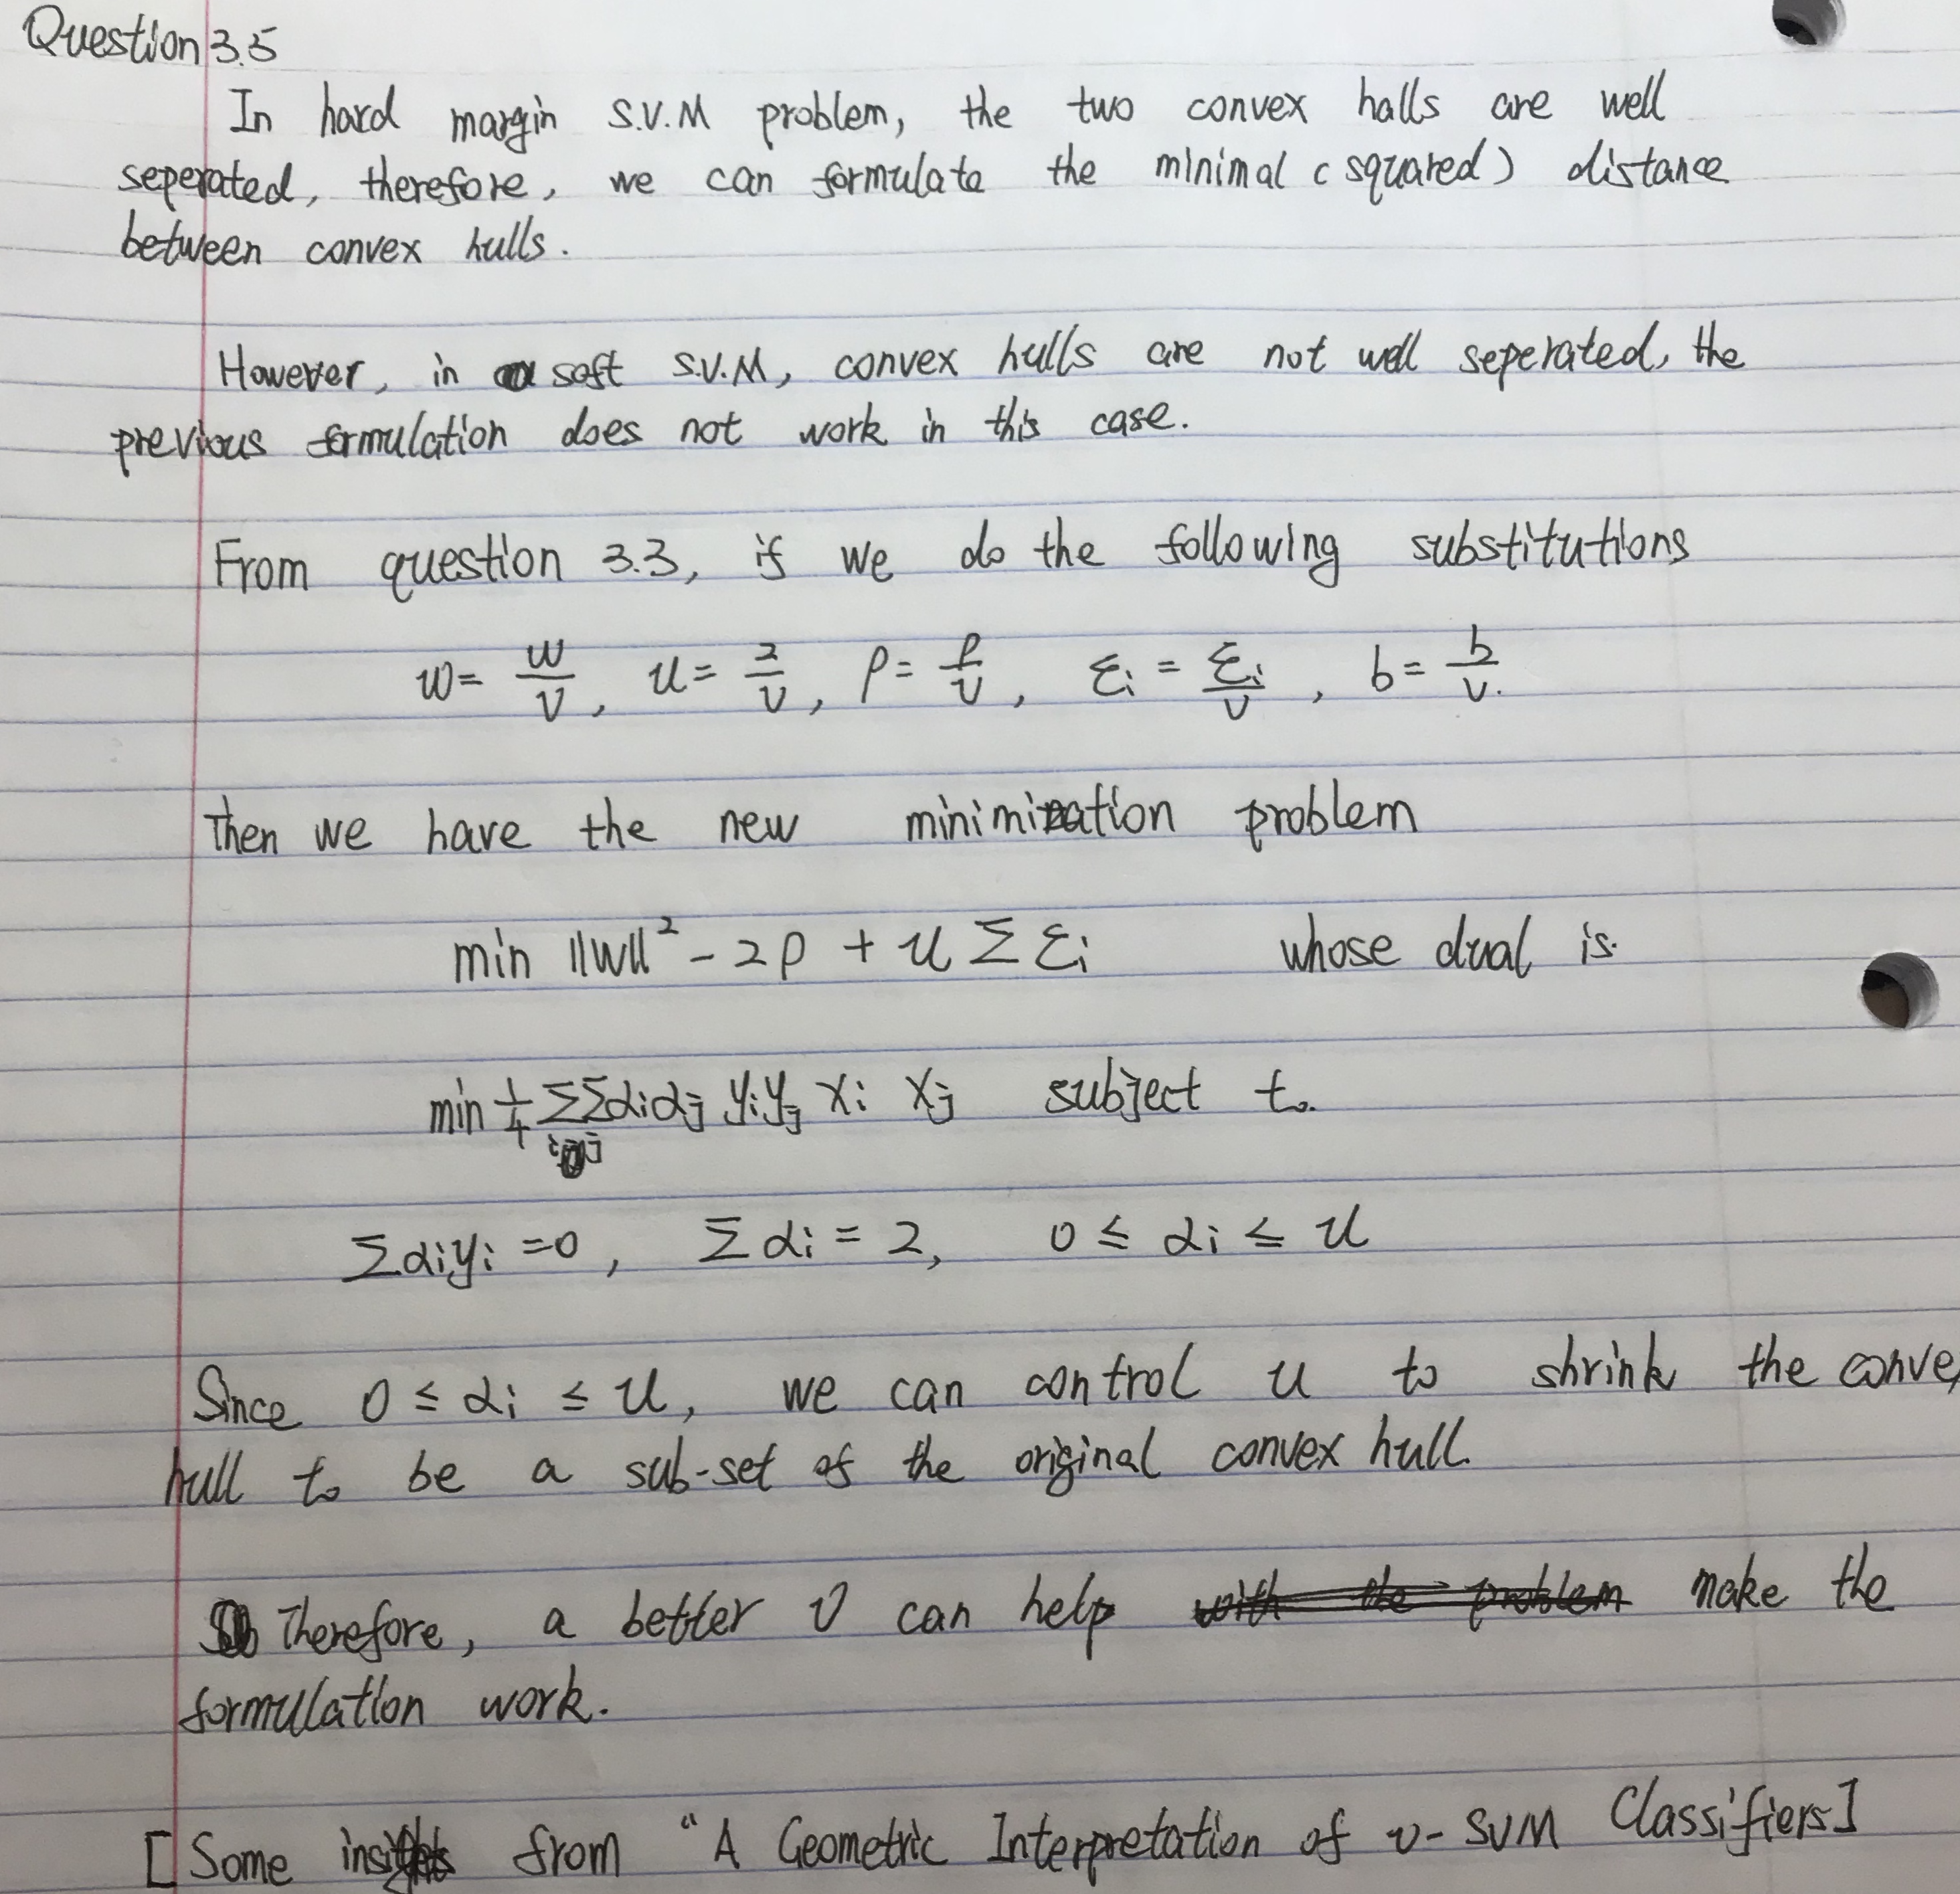 Question 3.5
In hard margin S.V.M problem, the two convex halls are well
seperated, therefore, we can formulate the minimal (squared) distance
between convex hulls.
However, in soft S.V.M, convex hulls are not well seperated, the
previous formulation does not work in this case.
From question 3.3, if we do the following substitutions
w = w/ν, u = 2/ν, ρ = ρ/ν, ξi = ξi/ν, b = b/ν.
Then we have the new minimization problem
min ||w||² - 2ρ + u Σ ξi whose dual is.
min 1/4 ΣΣ αiαj yiyj xi xj subject to.
i j
Σαiyi = 0, Σαi = 2, 0 ≤ αi ≤ u
Since 0 ≤ αi ≤ u, we can control u to shrink the conve
hull to be a sub-set of the original convex hull.
Therefore, a better ν can help with the problem make the
formulation work.
[Some insights from "A Geometric Interpretation of ν-SVM Classifiers]